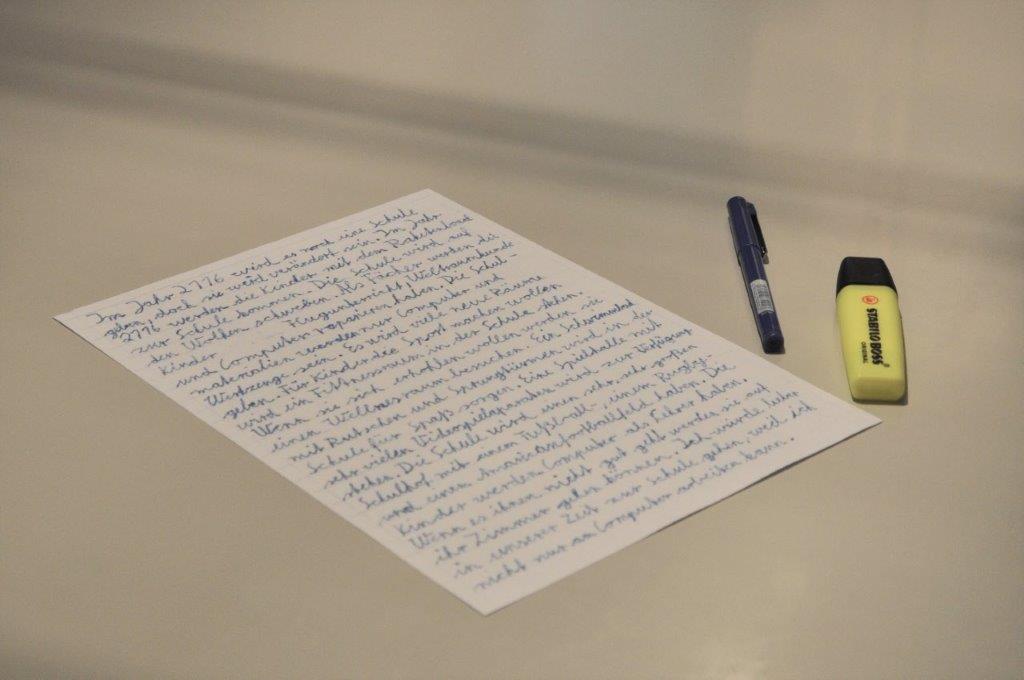 Im Jahr 2776 wird es noch eine Schule
geben, doch sie wird verändert sein. Im Jahr
2776 werden die Kinder mit dem Raketenboard
zur Schule kommen. Die Schule wird auf
den Wolken schweben. Als Fächer werden die
Kinder Flugunterricht, Weltraumkunde
und Computer reparieren haben. Die Schul-
materialien werden nur Computer und
Werkzeuge sein. Es wird viele neue Räume
geben. Für Kinder die Sport machen wollen
wird ein Fittnessraum in der Schule stehen.
Wenn sie sich erholen wollen werden sie
einen Wellnesraum besuchen. Ein Schwimmbad
mit Rutschen und Sprungtürmen wird in der
Schule für Spaß sorgen. Eine Spielhalle mit
sehr vielen Videospielaparaten wird zur Verfügung
stehen. Die Schule wird einen sehr, sehr großen
Schulhof mit einem Fußball-, einem Rugby-
und einem Americanfootballfeld haben. Die
Kinder werden Computer als Lehrer haben.
Wenn es ihnen nicht gut geht werden sie auf
ihr Zimmer gehen können. Ich würde lieber
in unserer Zeit zur Schule gehen, weil ich
nicht nur am Computer arbeiten kann.
STABILO BOSS
ORIGINAL